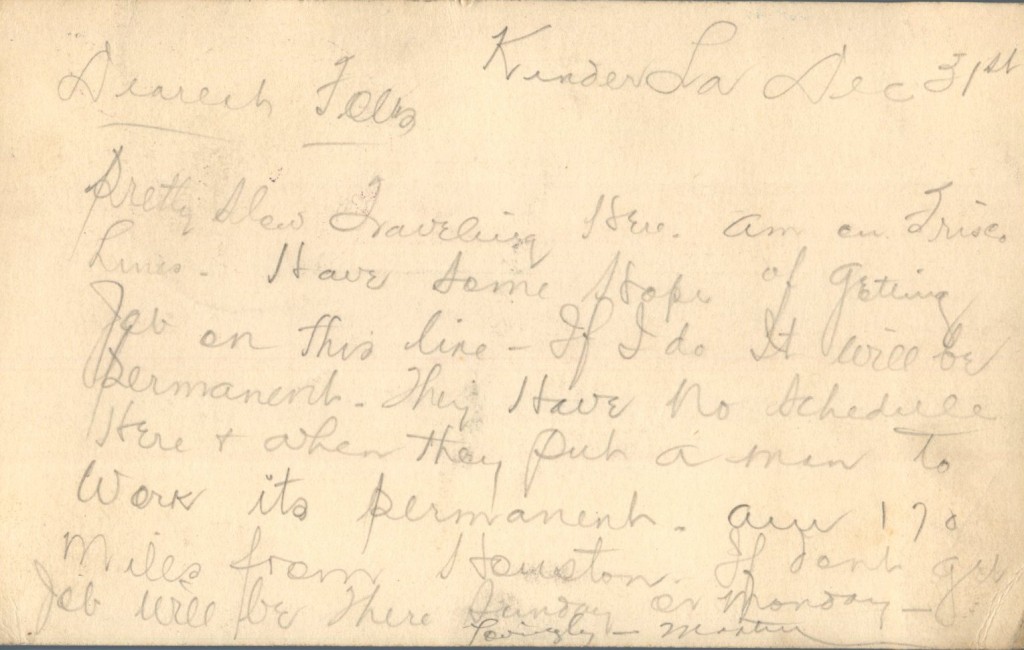 Kinder La Dec 31st
Dearest Folks
Pretty Slow Traveling Here. Am on Frisco
Lines. Have Some Hope of Getting
Job on This line - If I do It will be
Permanent. They Have No Schedule
Here + when they put a man to
Work its permanent. Am 170
Miles from Houston. If dont get
Job will be There Sunday or Monday -
Lovingly - Martin